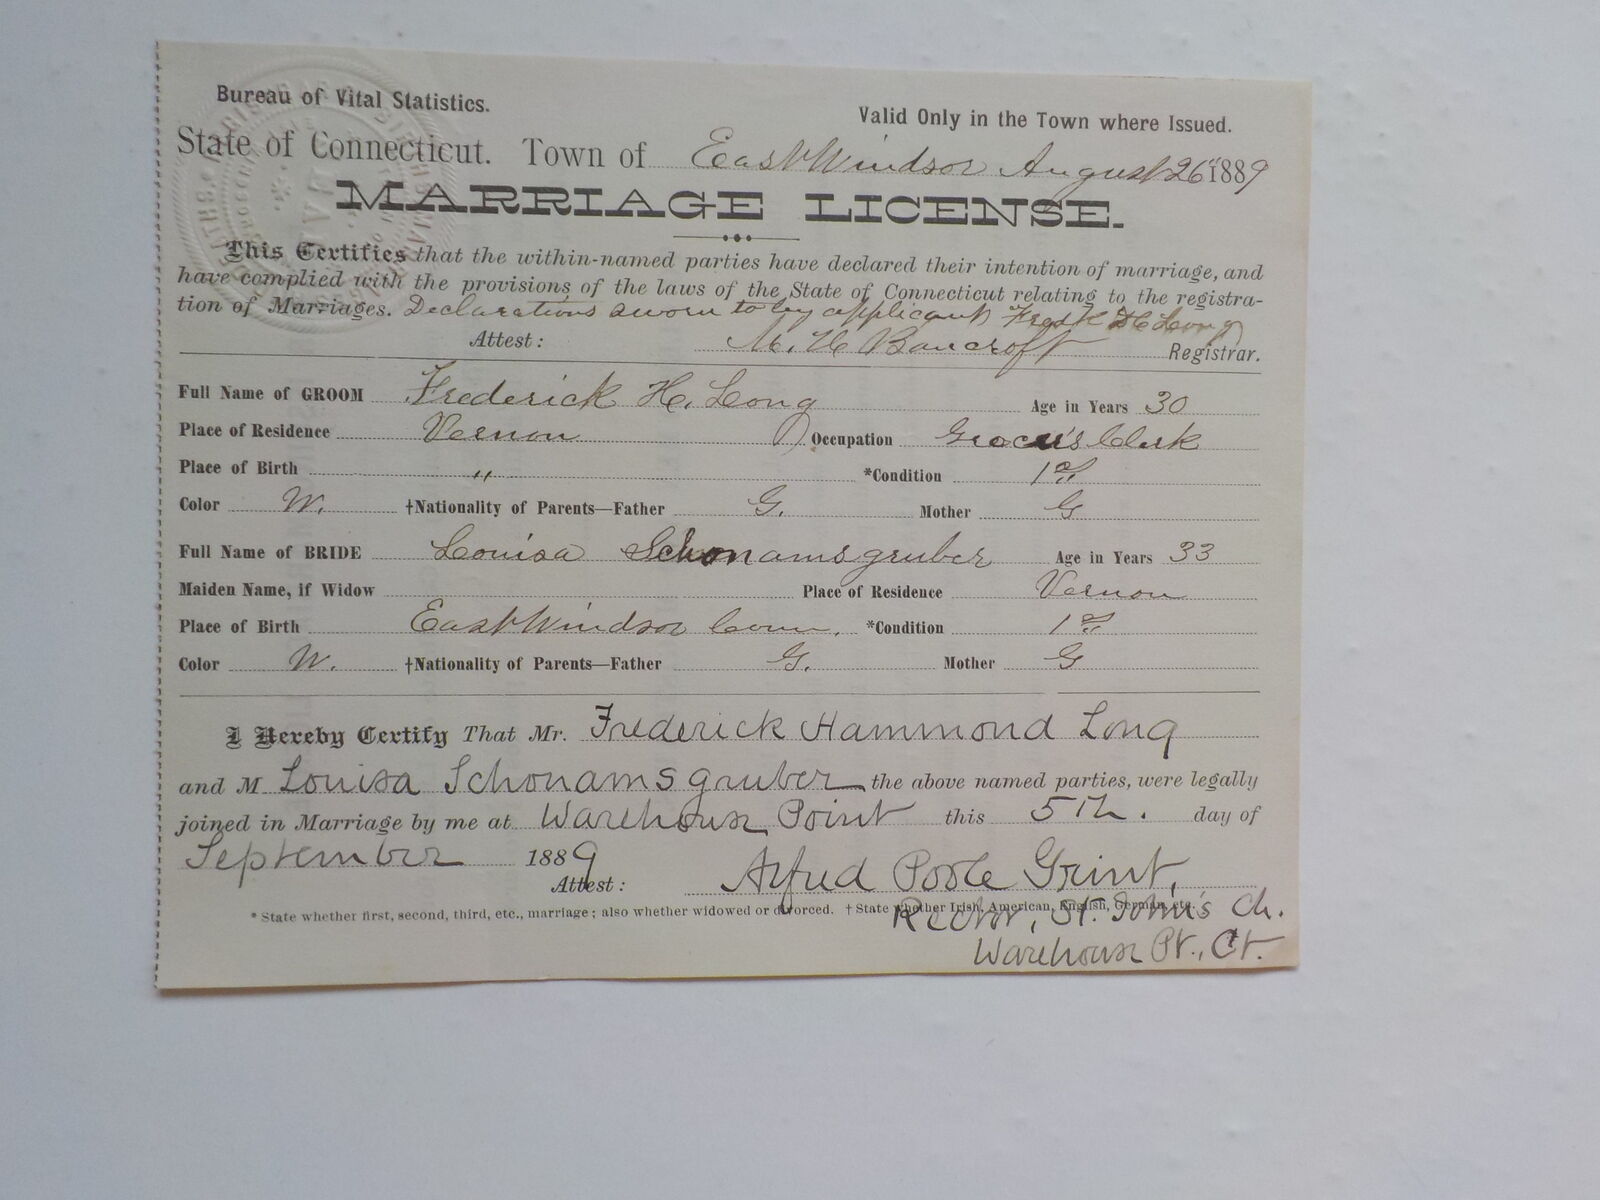 Bureau of Vital Statistics.
Valid Only in the Town where Issued.
State of Connecticut. Town of East Windsor August 26" 1889
MARRIAGE LICENSE.
This Certifies that the within-named parties have declared their intention of marriage, and
have complied with the provisions of the laws of the State of Connecticut relating to the registra-
tion of Marriages. Declarations sworn to by applicant Fredk H Long
Attest: M. H. Bancroft Registrar.
Full Name of GROOM Frederick H. Long Age in Years 30
Place of Residence Vernon Occupation Grocer's Clerk
Place of Birth " *Condition 1st
Color W. †Nationality of Parents—Father G. Mother G
Full Name of BRIDE Louisa Schonamsgruber Age in Years 33
Maiden Name, if Widow Place of Residence Vernon
Place of Birth East Windsor Conn. *Condition 1st
Color W. †Nationality of Parents—Father G. Mother G
I Hereby Certify That Mr. Frederick Hammond Long
and M Louisa Schonamsgruber the above named parties, were legally
joined in Marriage by me at Warehouse Point this 5th. day of
September 1889
Attest: Alfred Poole Grint,
* State whether first, second, third, etc., marriage; also whether widowed or divorced. † State whether Irish, American, English, German, etc.
Rector, St. John's Ch.
Warehouse Pt., Ct.